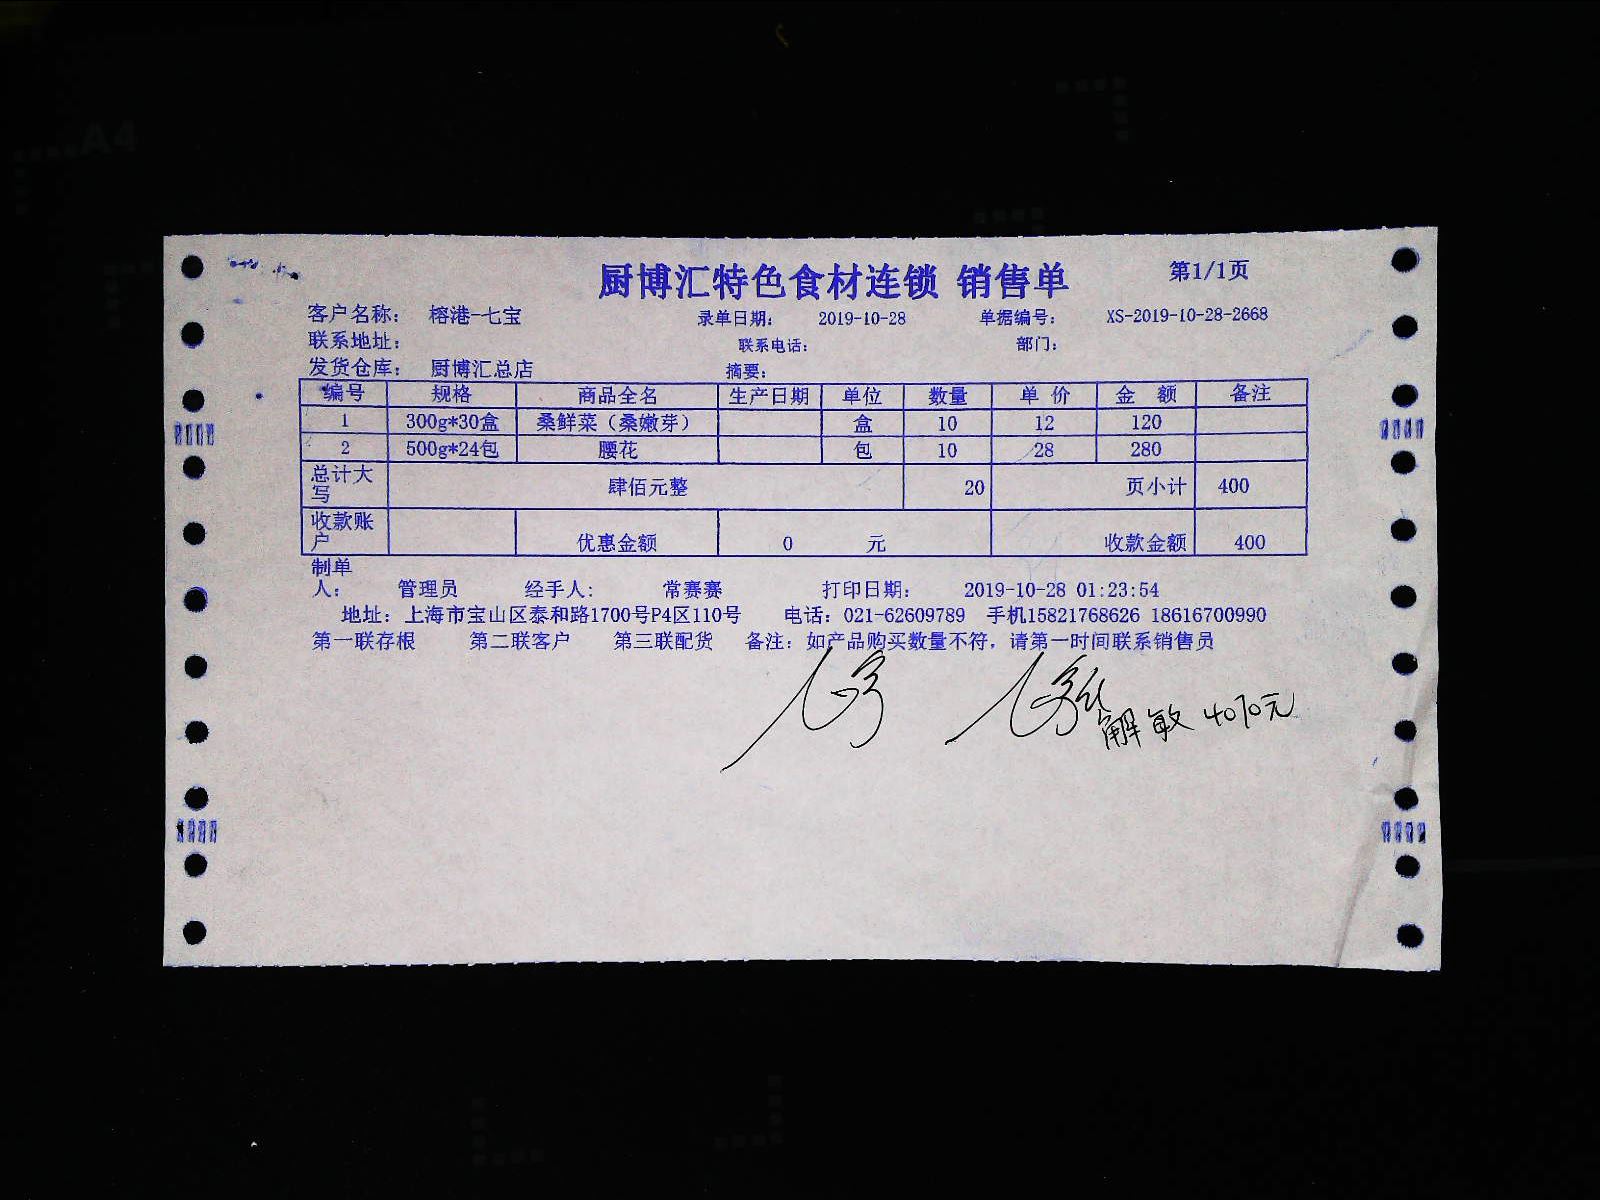 厨博汇特色食材连锁 销售单 第1/1页
客户名称： 榕港-七宝 录单日期： 2019-10-28 单据编号： XS-2019-10-28-2668
联系地址： 联系电话： 部门：
发货仓库： 厨博汇总店 摘要：
编号 规格 商品全名 生产日期 单位 数量 单 价 金 额 备注
1 300g*30盒 桑鲜菜（桑嫩芽） 盒 10 12 120
2 500g*24包 腰花 包 10 28 280
总计大写 肆佰元整 20 页小计 400
收款账户 优惠金额 0 元 收款金额 400
制单人： 管理员 经手人： 常赛赛 打印日期： 2019-10-28 01:23:54
地址：上海市宝山区泰和路1700号P4区110号 电话：021-62609789 手机15821768626 18616700990
第一联存根 第二联客户 第三联配货 备注：如产品购买数量不符，请第一时间联系销售员
解敏
A4